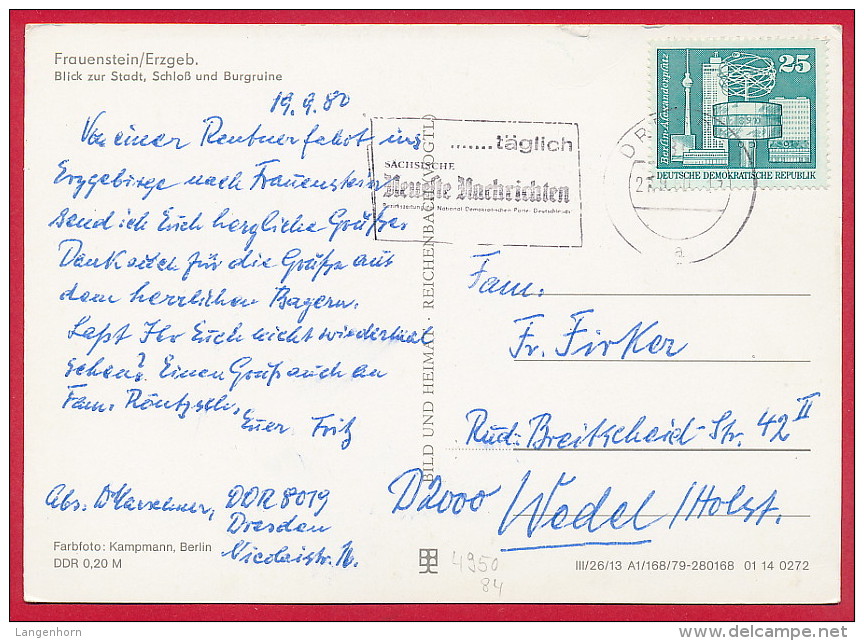 Frauenstein/Erzgeb.
Blick zur Stadt, Schloß und Burgruine
19.9.80
Von einer Rentnerfahrt ins
Erzgebirge nach Frauenstein
send ich Euch herzliche Grüße.
Dank auch für die Grüße aus
dem herrlichen Bayern.
Laßt Ihr Euch nicht wiedermal
sehen? Einen Gruß auch an
Fam. Röntzsch.
Euer Fritz
Abs. DDR 8019
Dresden
Nicolaistr.
Farbfoto: Kampmann, Berlin
DDR 0,20 M
BILD UND HEIMAT · REICHENBACH (VOGTL)
.......täglich
SÄCHSISCHE
Neueste Nachrichten
Bezirkszeitung der National Demokratischen Partei Deutschlands
25
Berlin-Alexanderplatz
DEUTSCHE DEMOKRATISCHE REPUBLIK
a
Fam.
Fr. Firker
Rud.-Breitscheid-Str. 42 II
D2000 Wedel/Holst.
4950
84
III/26/13 A1/168/79-280168 01 14 0272
Langenhorn
delcampe.net